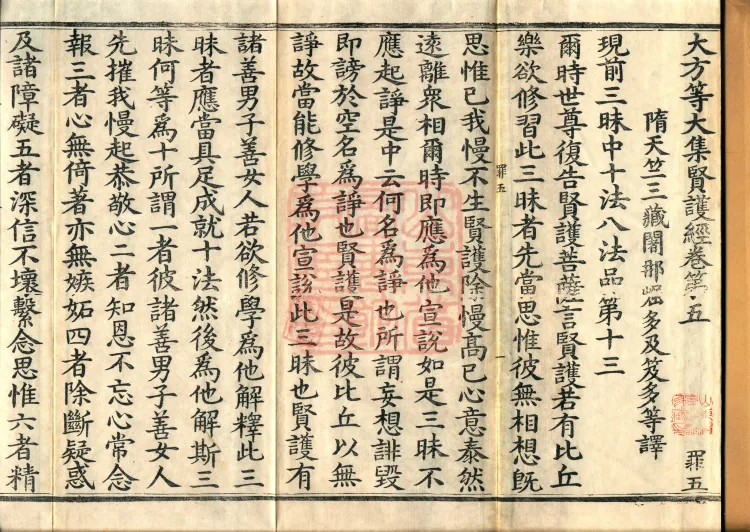 大方等大集賢護經卷第五
罪五
隋天竺三藏闍那崛多及笈多等譯
現前三昧中十法八法品第十三
爾時世尊復告賢護菩薩言賢護若有比丘
樂欲修習此三昧者先當思惟彼無相想旣
思惟已我慢不生賢護除慢髙已心意泰然
遠離衆相爾時即應爲他宣說如是三昧不
應起諍是中云何名爲諍也所謂妄想誹毀
即謗於空名爲諍也賢護是故彼比丘以無
諍故當能修學爲他宣說此三昧也賢護有
諸善男子善女人若欲修學爲他解釋此三
昧者應當具足成就十法然後爲他解斯三
昧何等爲十所謂一者彼諸善男子善女人
先摧我慢起恭敬心二者知恩不忘心常念
報三者心無倚著亦無嫉妬四者除斷疑惑
及諸障礙五者深信不壞繫念思惟六者精
罪五
一